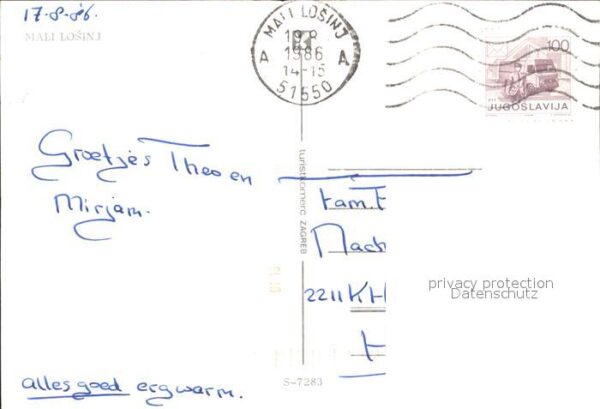 17-8-'86.
MALI LOŠINJ
MALI LOŠINJ
A A
1986
14-15
51550
100
JUGOSLAVIJA
Groetjes Theo en
Mirjam.
turistkomerc ZAGREB
fam.
2211KH
privacy protection
Datenschutz
alles goed erg warm.
S-7283